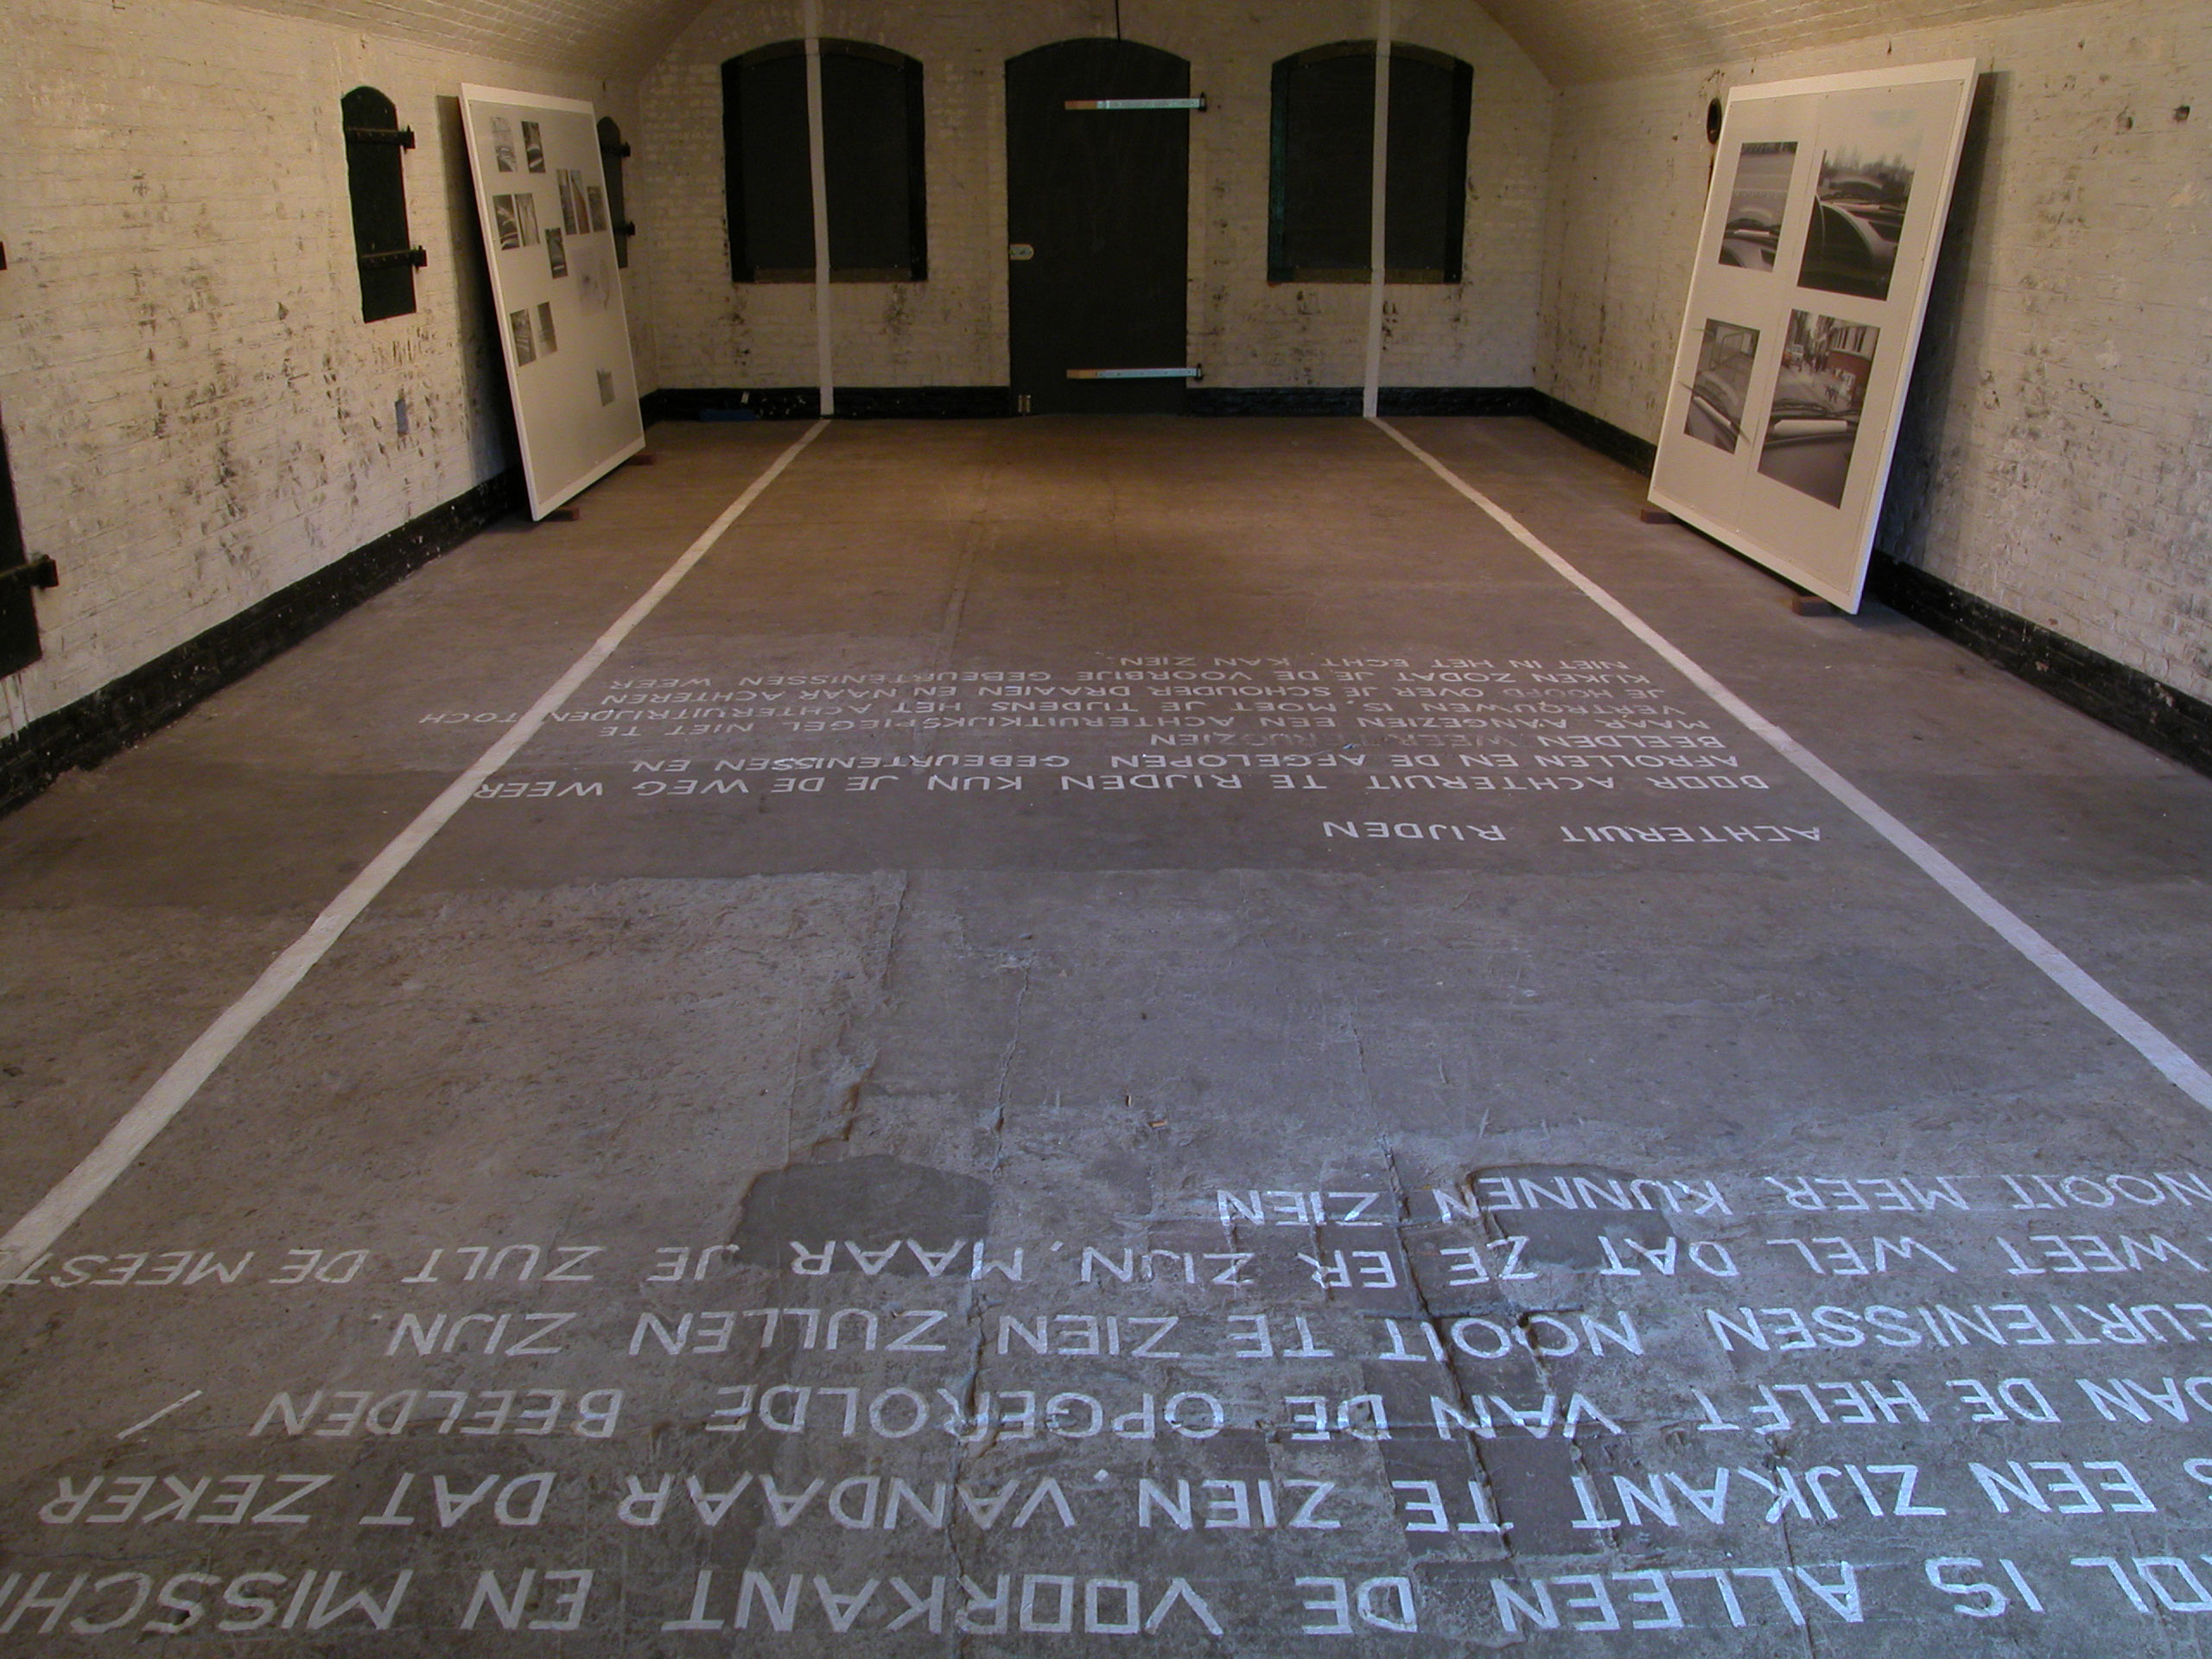 OL IS ALLEEN DE VOORKANT EN MISSCHI
S EEN ZIJKANT TE ZIEN, VANDAAR DAT ZEKER
DAN DE HELFT VAN DE OPGEROLDE BEELDEN /
EURTENISSEN NOOIT TE ZIEN ZULLEN ZIJN.
WEET WEL DAT ZE ER ZIJN, MAAR JE ZULT DE MEEST
NOOIT MEER KUNNEN ZIEN
ACHTERUIT RIJDEN
DOOR ACHTERUIT TE RIJDEN KUN JE DE WEG WEER
AFROLLEN EN DE AFGELOPEN GEBEURTENISSEN EN
BEELDEN WEER TERUGZIEN
MAAR AANGEZIEN EEN ACHTERUITKIJKSPIEGEL NIET TE
VERTROUWEN IS, MOET JE TIJDENS HET ACHTERUITRIJDEN TOCH
JE HOOFD OVER JE SCHOUDER DRAAIEN EN NAAR ACHTEREN
KIJKEN ZODAT JE DE VOORBIJE GEBEURTENISSEN WEER
NIET IN HET ECHT KAN ZIEN.